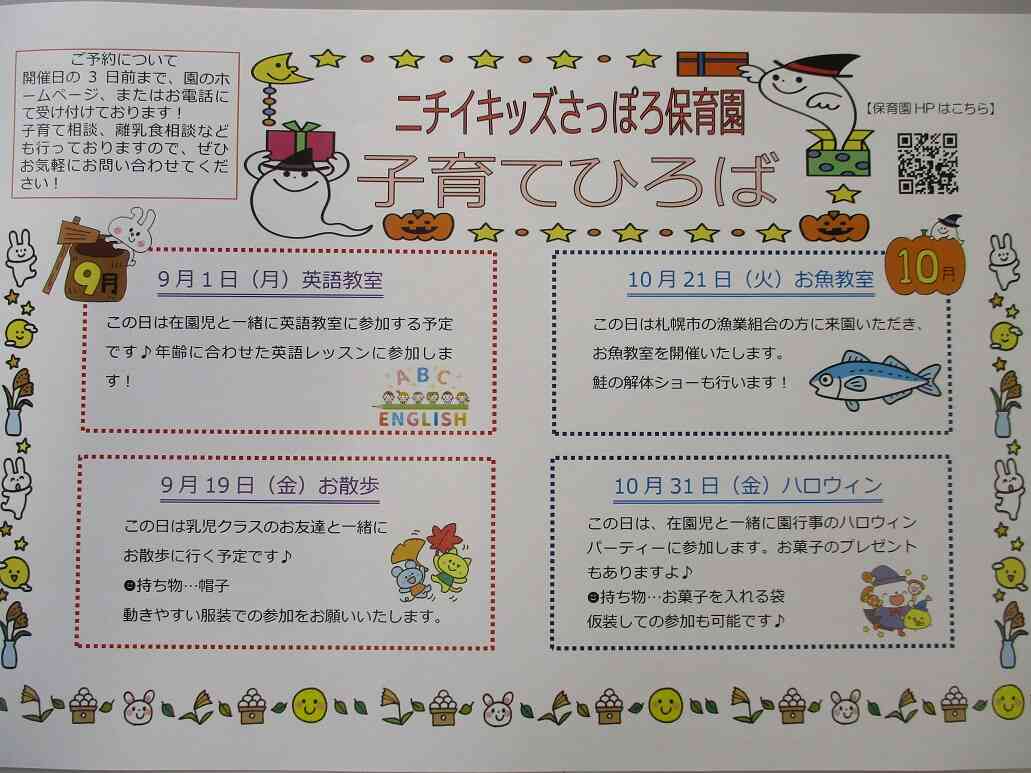 ご予約について
開催日の 3 日前まで、園のホ
ームページ、またはお電話に
て受け付けております！
子育て相談、離乳食相談など
も行っておりますので、ぜひ
お気軽にお問い合わせくだ
さい！
ニチイキッズさっぽろ保育園
子育てひろば
【保育園 HP はこちら】
9月
9 月 1 日（月）英語教室
この日は在園児と一緒に英語教室に参加する予定
です♪年齢に合わせた英語レッスンに参加しま
す！
ABC
ENGLISH
9 月 19 日（金）お散歩
この日は乳児クラスのお友達と一緒に
お散歩に行く予定です♪
☻持ち物…帽子
動きやすい服装での参加をお願いいたします。
10月
10 月 21 日（火）お魚教室
この日は札幌市の漁業組合の方に来園いただき、
お魚教室を開催いたします。
鮭の解体ショーも行います！
10 月 31 日（金）ハロウィン
この日は、在園児と一緒に園行事のハロウィン
パーティーに参加します。お菓子のプレゼント
もありますよ♪
☻持ち物…お菓子を入れる袋
仮装しての参加も可能です♪